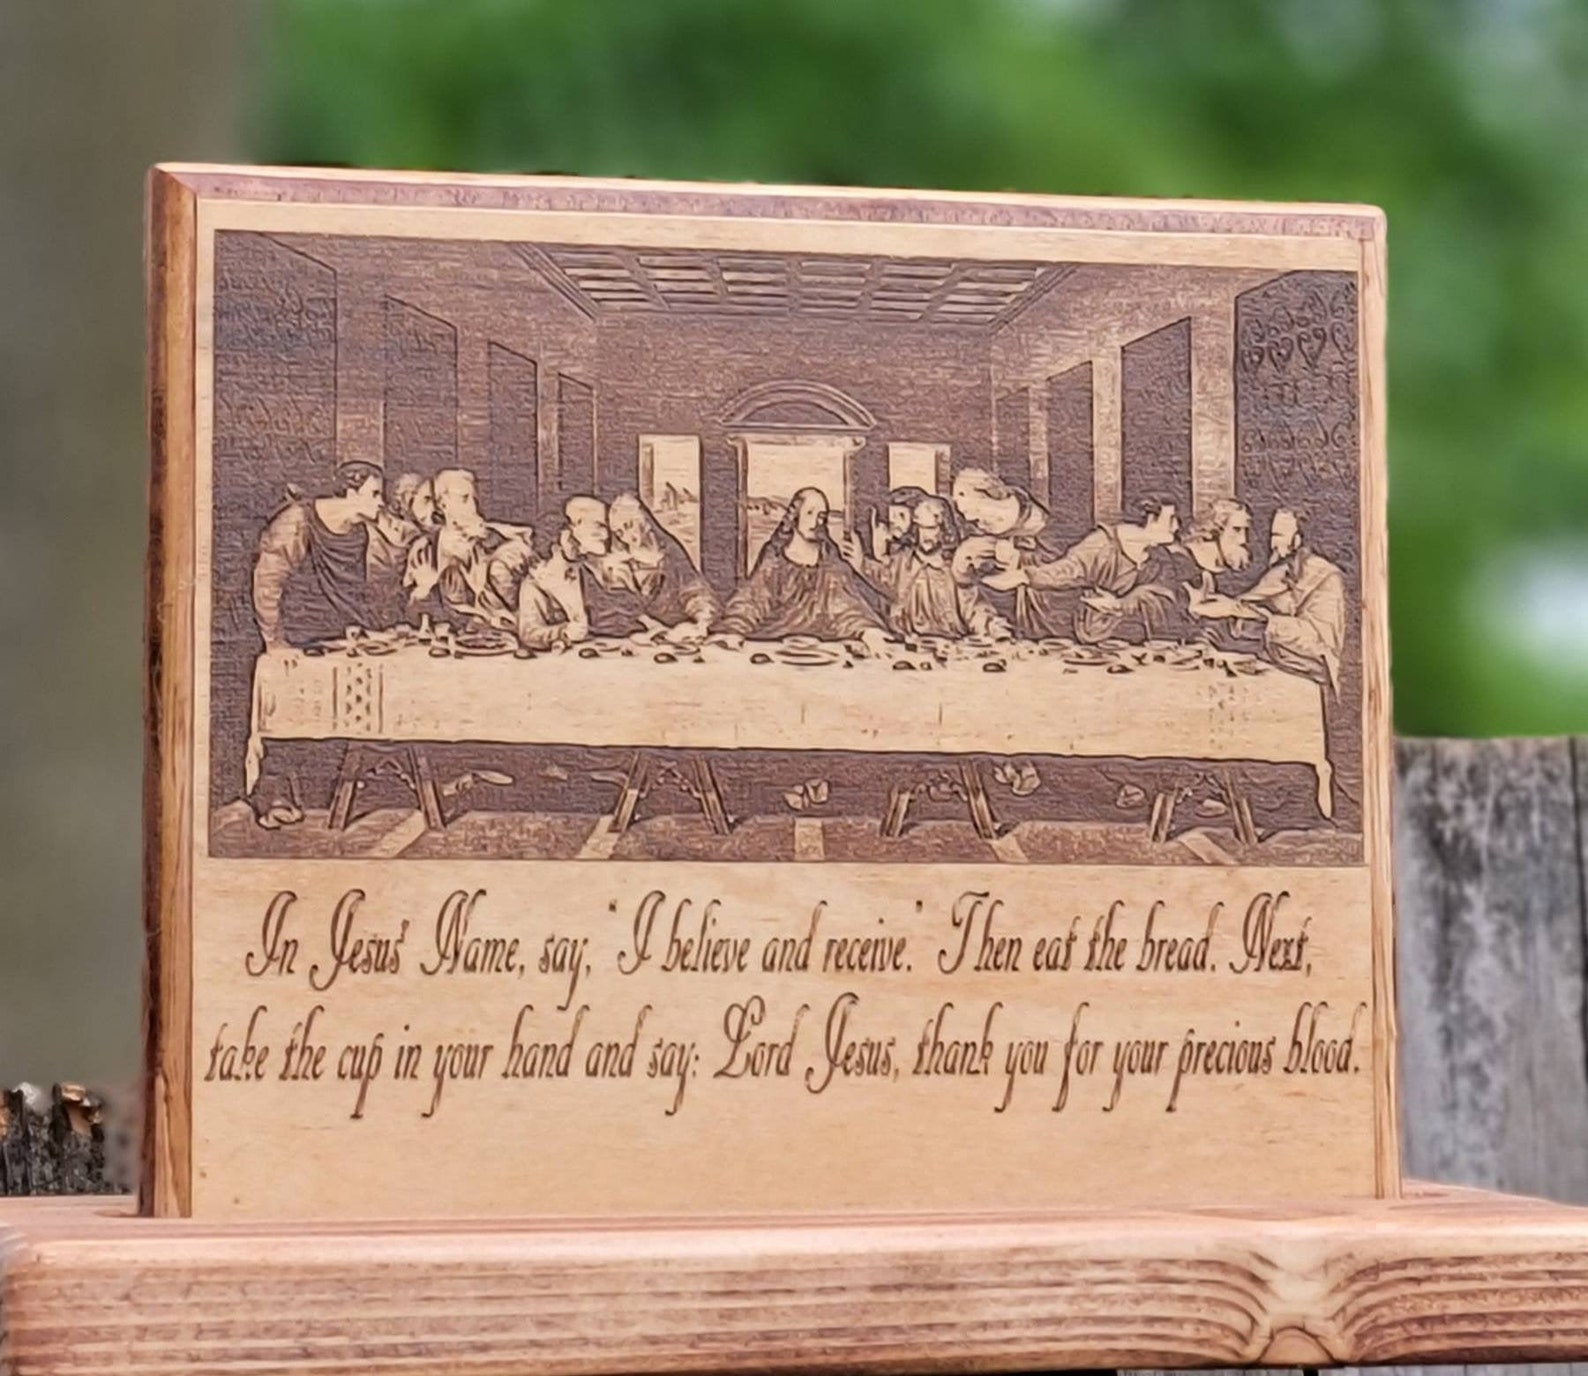 In Jesus' Name, say, "I believe and receive." Then eat the bread. Next,
take the cup in your hand and say: Lord Jesus, thank you for your precious blood.